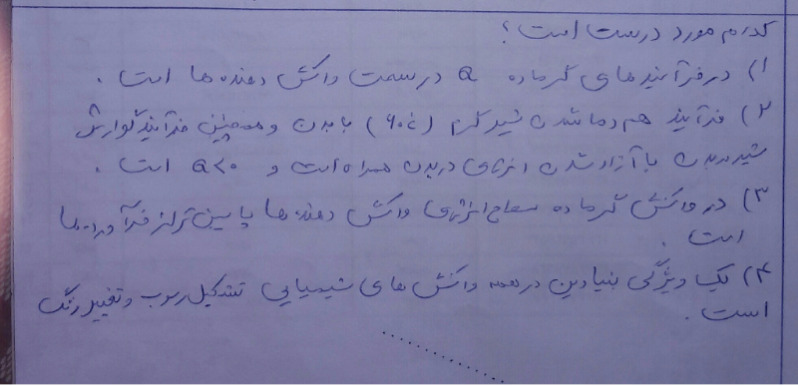 کدام مورد درست است؟
۱) در فرآیندهای گرماده Q در سمت واکنش دهنده ها است .
۲) فرآیند هم دما شدن شیر گرم (۶۰c) با بدن و همچنین فرآیند گوارش
شیر در بدن با آزاد شدن انرژی در بدن همراه است و Q<۰ است .
۳) در واکنش گرماده سطح انرژی واکنش دهنده ها پایین تر از فرآورده ها
است .
۴) یک ویژگی بنیادین در همه واکنش های شیمیایی تشکیل رسوب و تغییر رنگ
است .